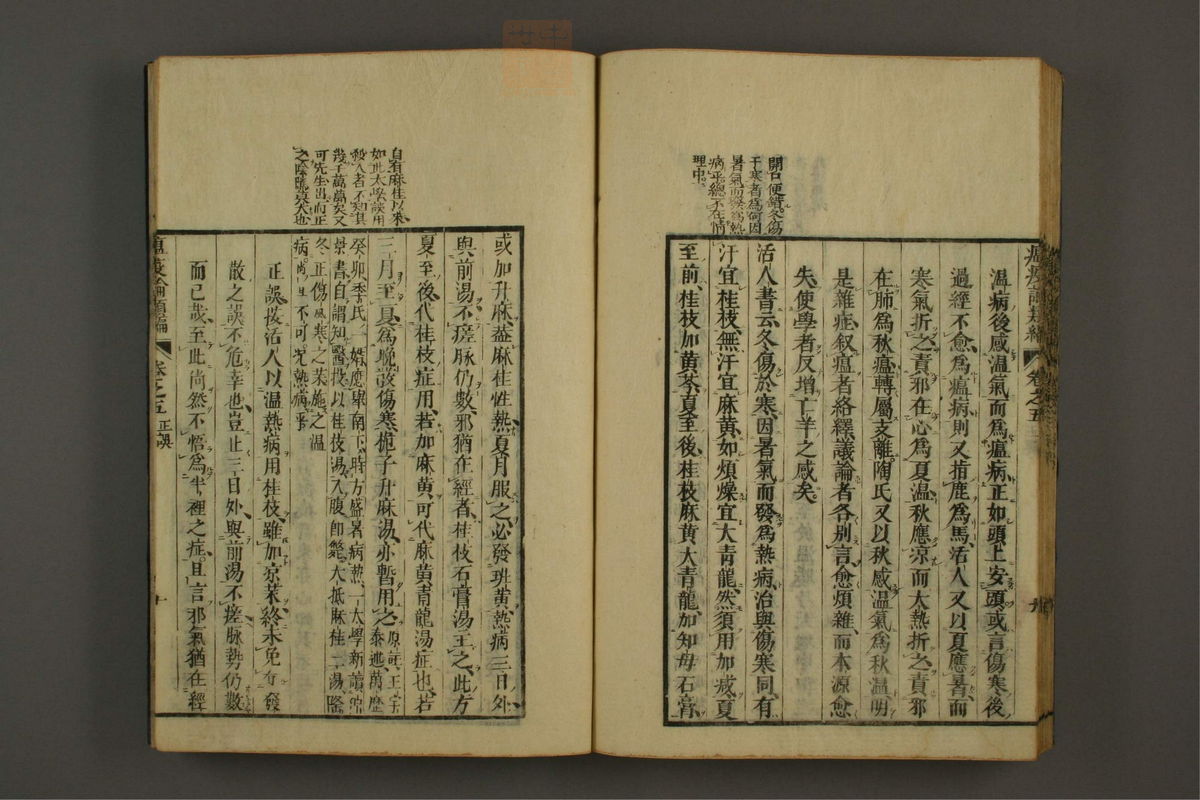 開口便錯冬傷
于寒者為何因
暑氣而發為熱
病乎總不在情
理中
溫病後感溫氣而為瘟病正如頭上安頭或言傷寒後
過經不愈為瘟病則又指鹿為馬活人又以夏應暑而
寒氣折之責邪在心為夏溫秋應涼而大熱折之責邪
在肺為秋瘟轉屬支離陶氏又以秋感溫氣為秋溫明
是雜症叙瘟者絡繹議論者各別言愈煩雜而本源愈
失使學者反增亡羊之感矣
活人書云冬傷於寒因暑氣而發為熱病治與傷寒同有
汗宜桂枝無汗宜麻黃如煩燥宜大青龍然須用加減夏
至前桂枝加黃芩夏至後桂枝麻黃大青龍加知母石膏
自有麻桂以來
如此太峻誤用
殺人者不知其
幾千萬萬矣又
可先生出而正
之陰隲莫大也
或加升麻蓋麻桂性熱夏月服之必發班黃熱病三日外
與前湯不瘥脉仍數邪猶在經者桂枝石膏湯主之此方
夏至後代桂枝症用若加麻黃可代麻黃青龍湯症也若
三月至夏為晚發傷寒梔子升麻湯亦暫用之
癸卯季氏一婿應舉南下時方盛暑病熱一太學新讀
景書自謂知醫投以桂枝湯入腹即斃大抵麻桂二湯隆
冬正傷風寒之藥施之溫
病尚且不可况熱病乎
正誤按活人以溫熱病用桂枝雖加凉藥終未免有發
散之誤不危幸也豈止三日外與前湯不瘥脉勢仍數
而已哉至此尚然不悟為半裡之症且言邪氣猶在經
瘟疫論類編
卷之五 正誤